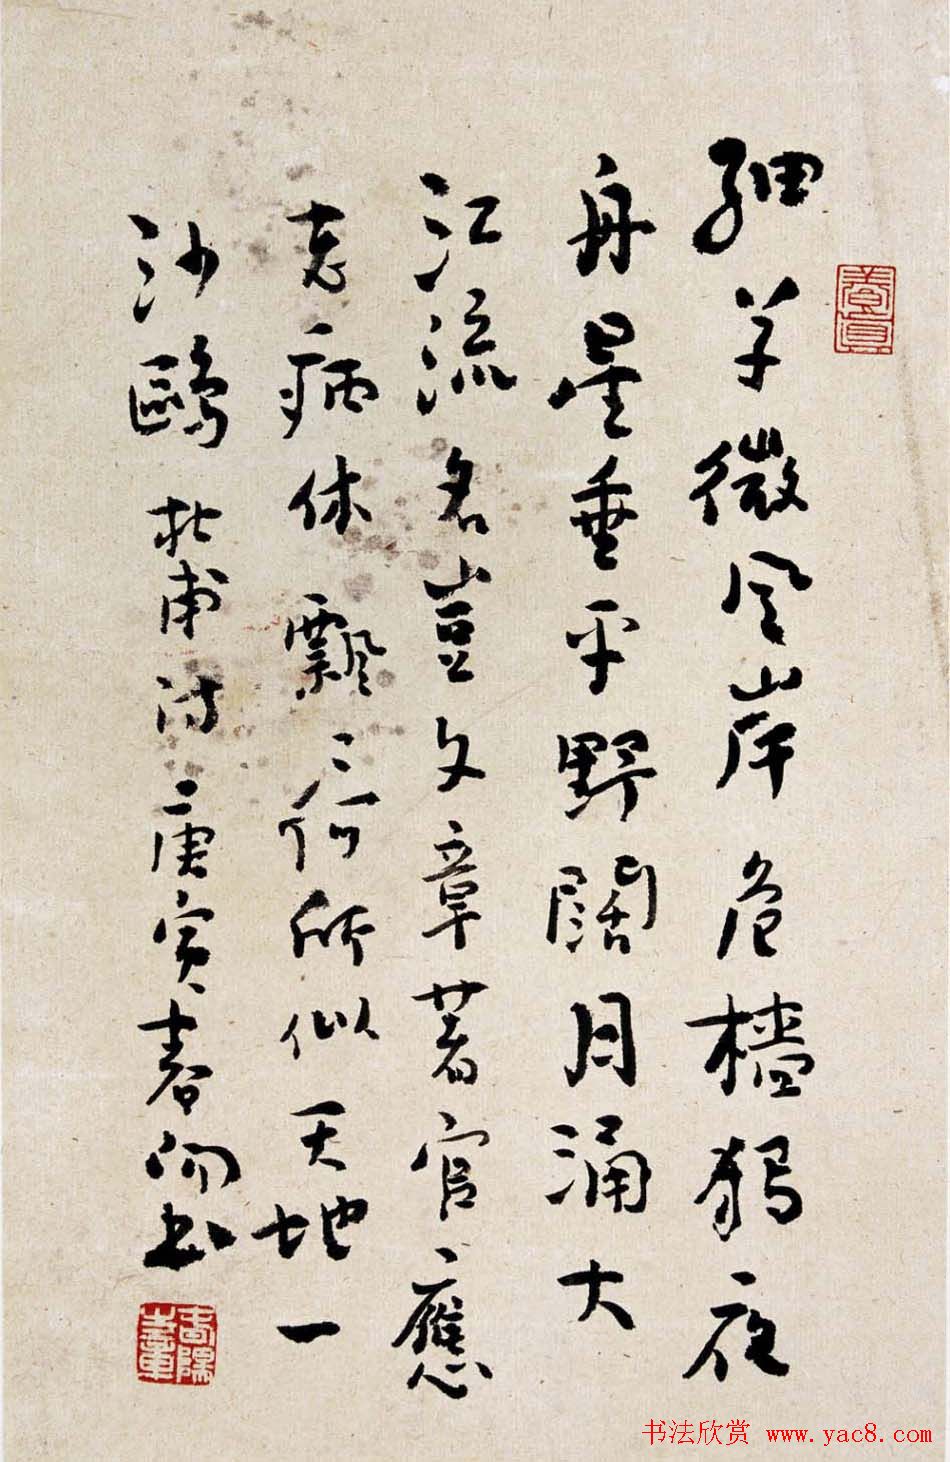 細草微風岸危檣獨夜
舟星垂平野闊月涌大
江流名豈文章著官應
老病休飄〻何所似天地一
沙鷗 杜甫詩 庚寅春 書
養真
书法欣赏 www.yac8.com